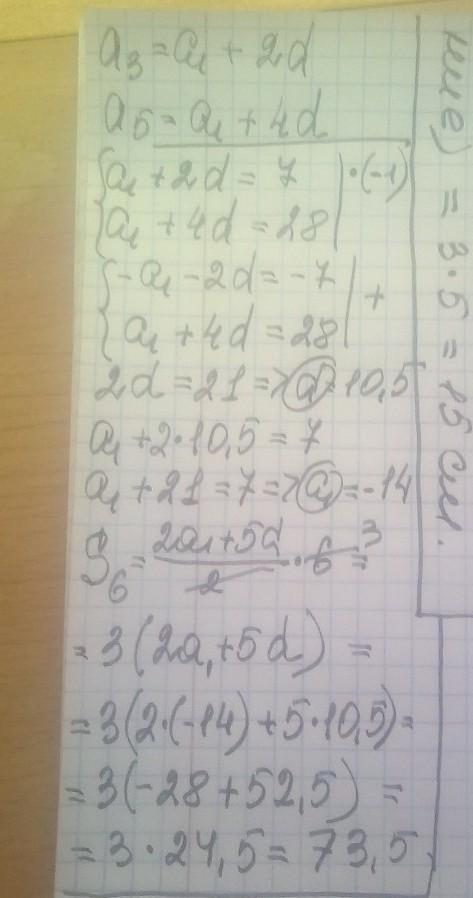 a₃ = a₁ + 2d
a₅ = a₁ + 4d
{a₁ + 2d = 7 | · (-1)
{a₁ + 4d = 28 |
{-a₁ - 2d = -7 | +
{a₁ + 4d = 28 |
2d = 21 => d = 10,5
a₁ + 2·10,5 = 7
a₁ + 21 = 7 => a₁ = -14
S₆ = (2a₁ + 5d)/2 · 6 ³ =
= 3(2a₁ + 5d) =
= 3(2·(-14) + 5·10,5) =
= 3(-28 + 52,5) =
= 3 · 24,5 = 73,5
= 3·5 = 15 см.